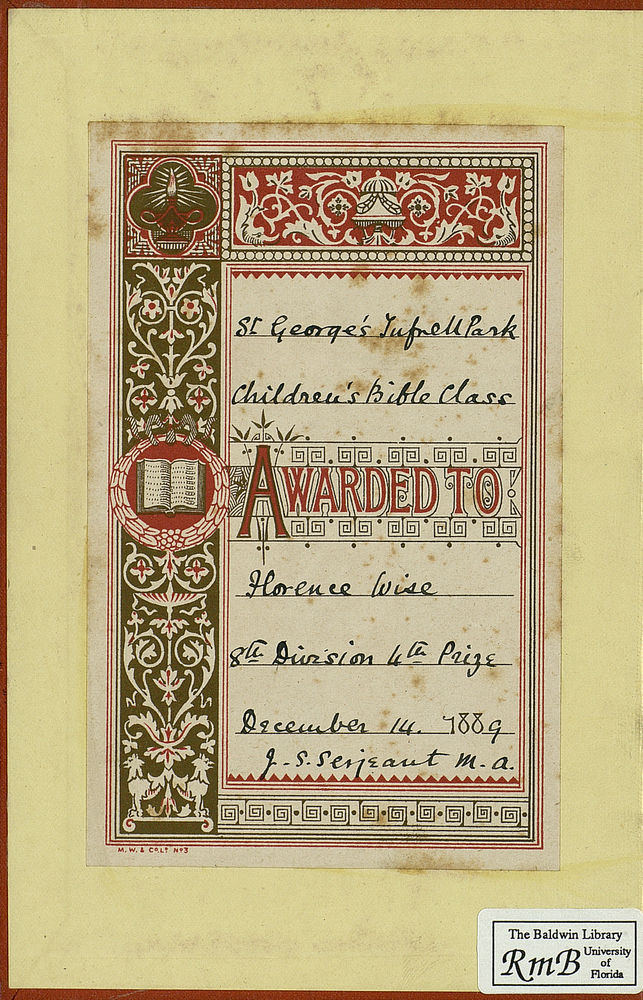 St George's Tufnell Park
Children's Bible Class
AWARDED TO
Florence Wise
8th Division 4th Prize
December 14. 1889
J. S. Serjeant M. A.
M. W. & Co. Lt No 3
The Baldwin Library
RmB University
of
Florida